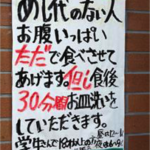 めし代のない人
お腹いっぱい
ただで食べさせて
あげます。但し食後
30分間お皿洗いを
していただきます。
学生さんで18才以上の方